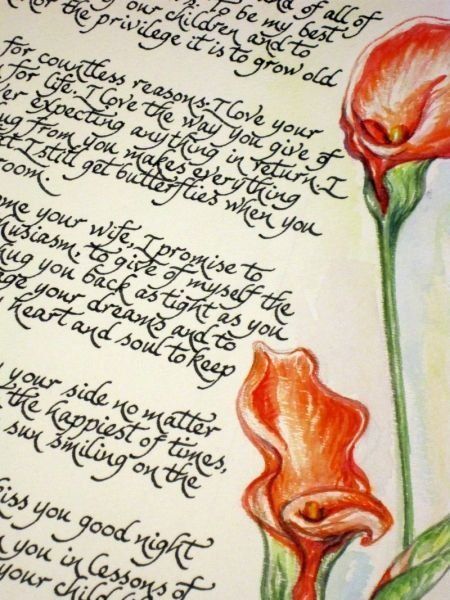 of all of
our children. To be my best
the privilege it is to grow old
for countless reasons. I love your
for life. I love the way you give of
expecting anything in return. I
from you makes everything
I still get butterflies when you
room.
your wife, I promise to
to give of myself the
hug you back as tight as you
your dreams and to
heart and soul to keep
your side no matter
the happiest of times,
sun smiling on the
kiss you good night
you in lessons of
your